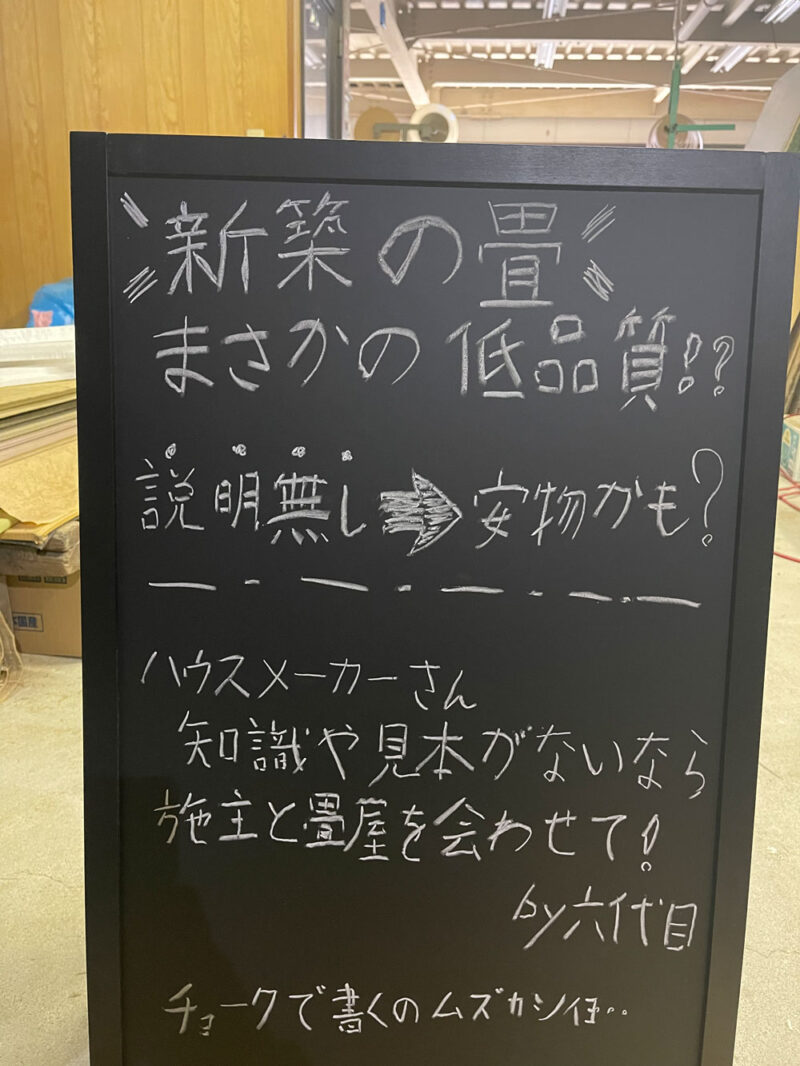 新築の畳
まさかの低品質!!?
説明無し➡安物かも?
ハウスメーカーさん
知識や見本がないなら
施主と畳屋を会わせて!
by六代目
チョークで書くのムズカシイ‥
国産